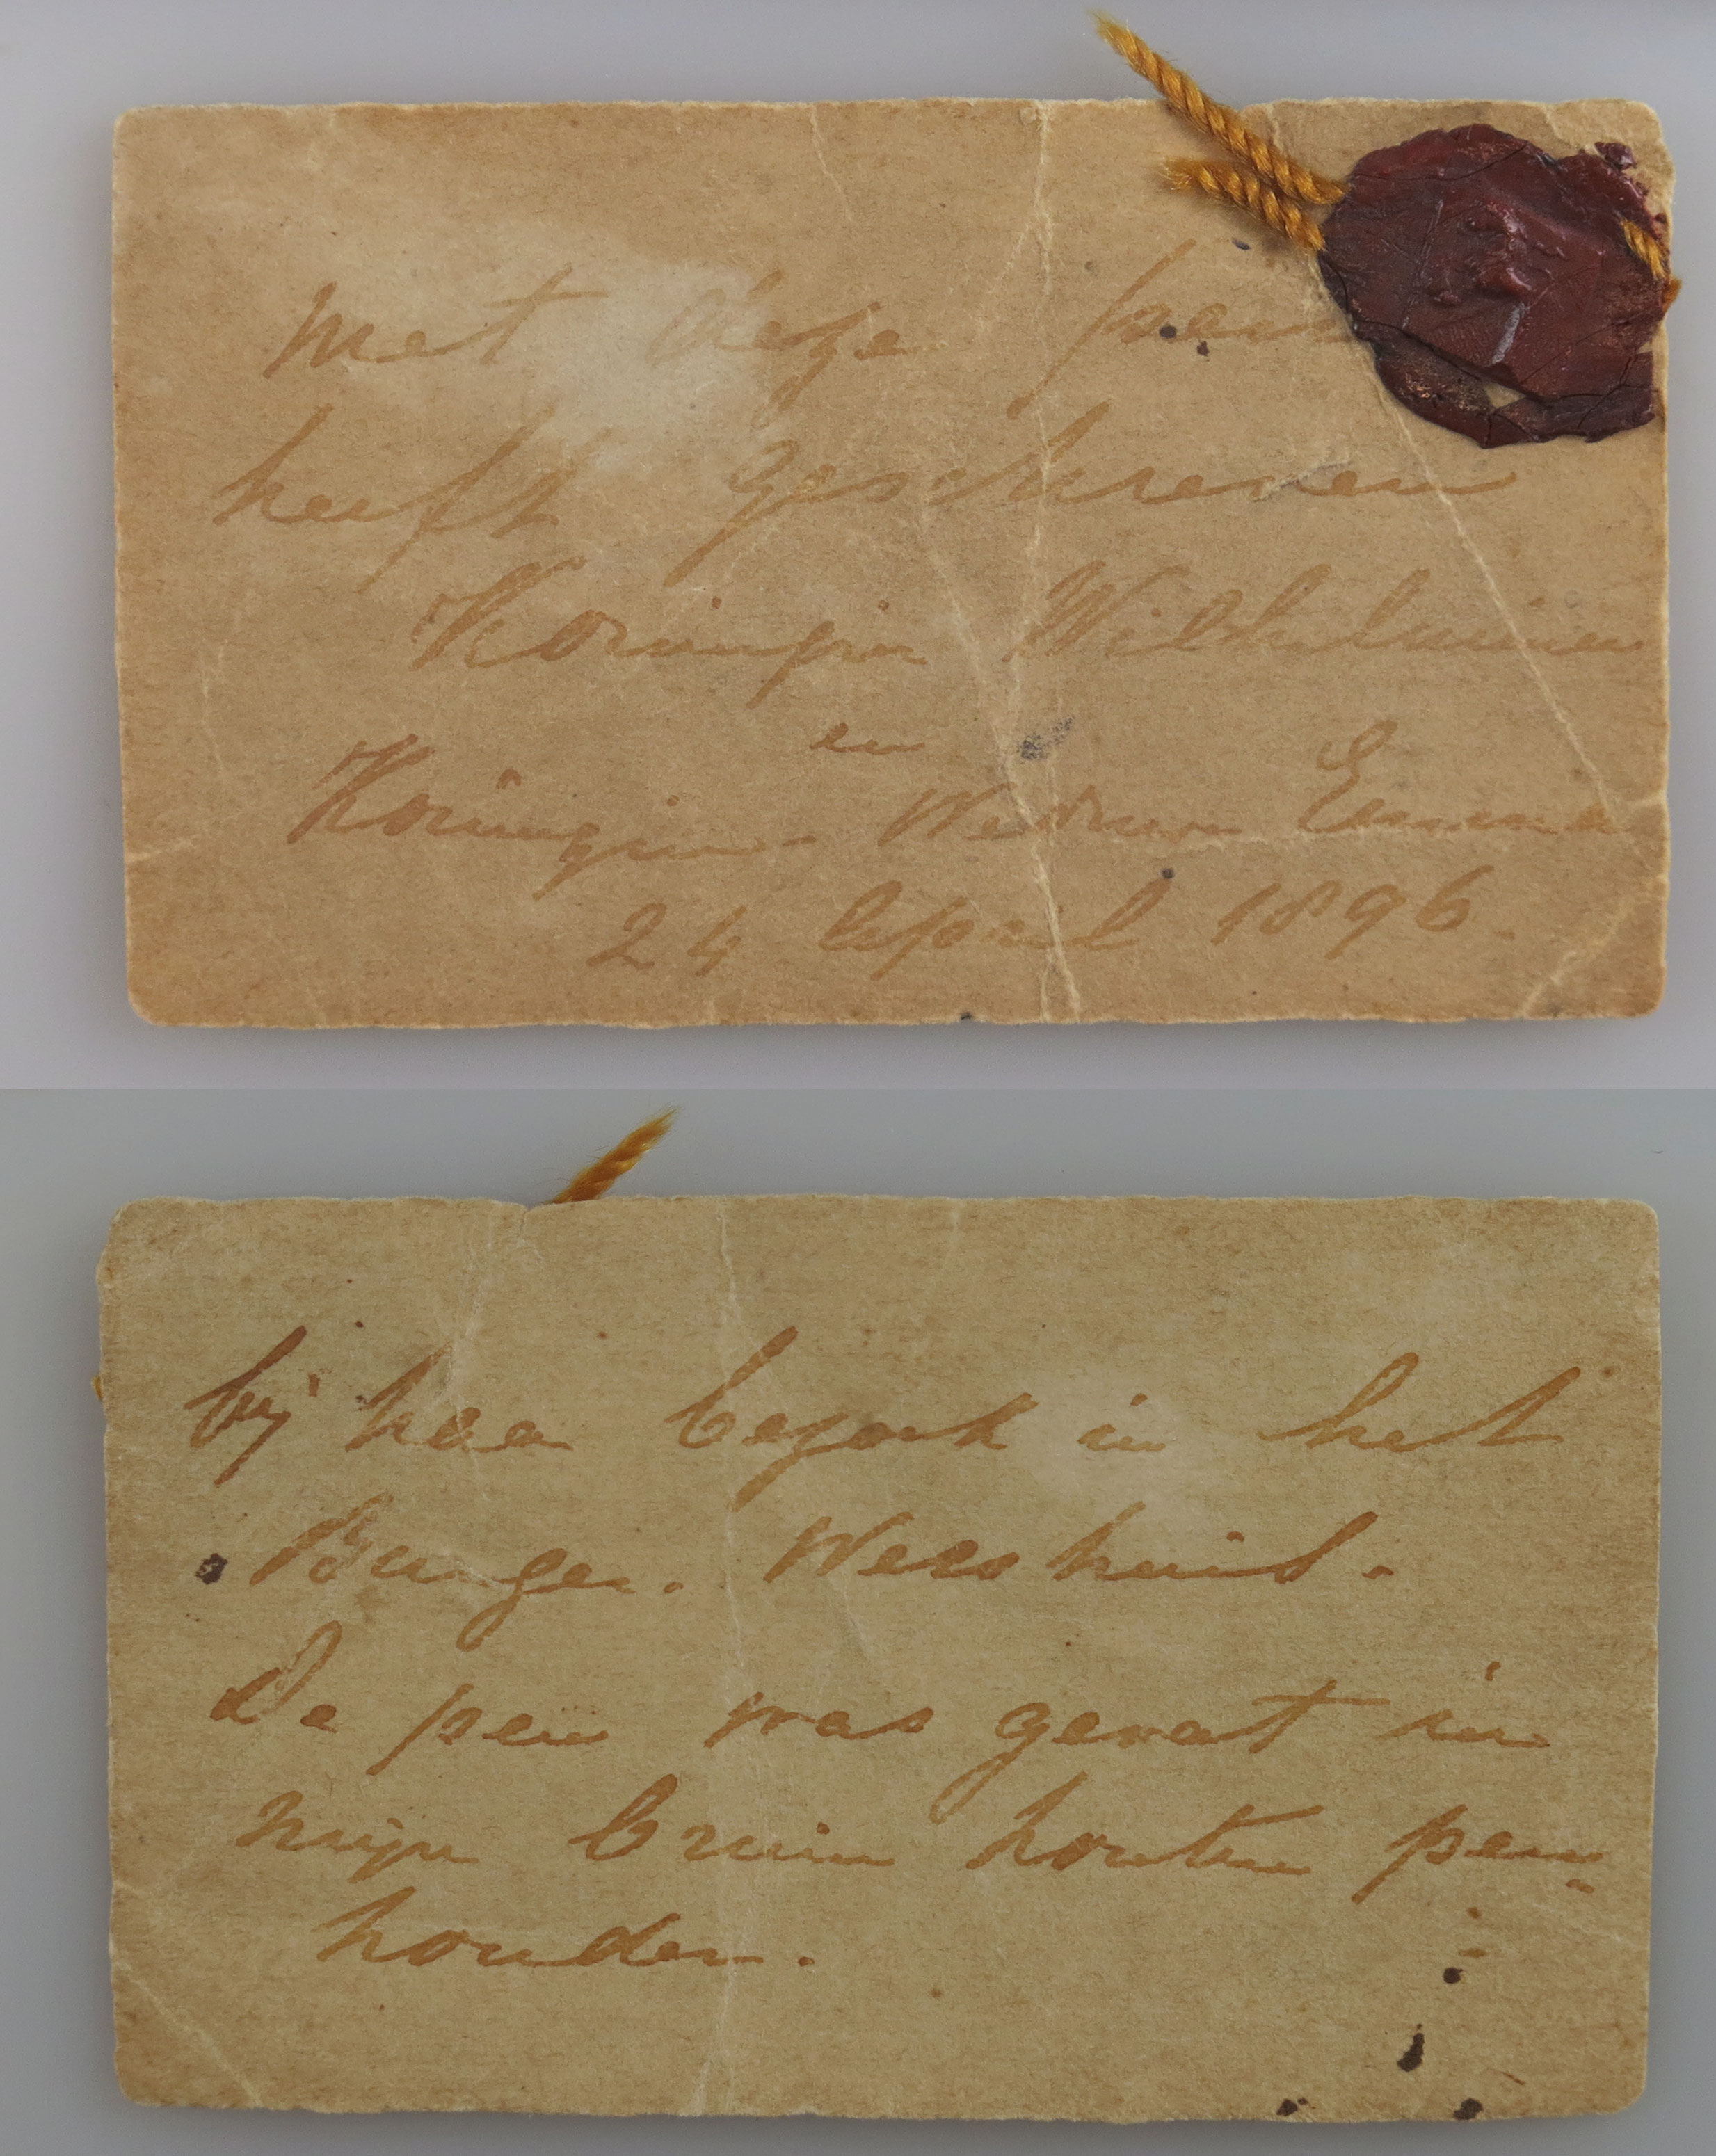 Met deze pen
heeft geschreven
Koningin Wilhelmina
en
Koningin-Weduwe Emma
24 April 1896.
bij haar bezoek in het
Burger. Weeshuis.
De pen was gevat in
mijn bruin houten pen-
houder.